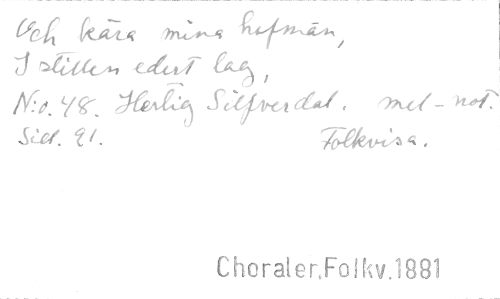 Och kära mina hofmän,
I stillen edert lag,
N:o. 48. Hertig Silfverdal. mel-not.
Sid. 91. Folkvisa.
Choraler,Folkv.1881